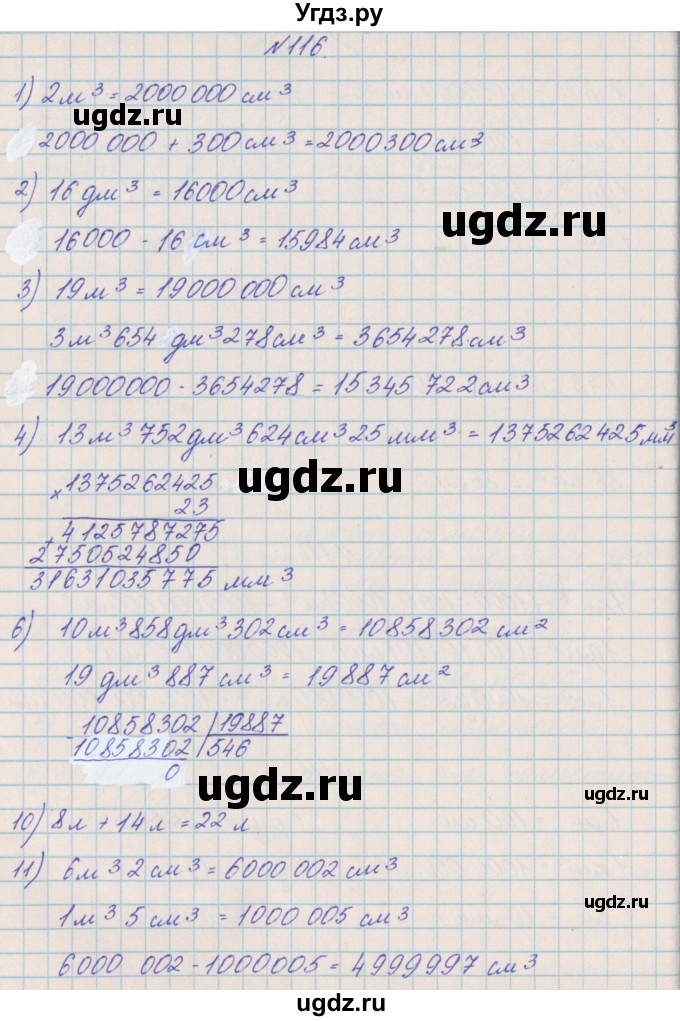 Угдз.ру
№116.
1) 2м³ = 2000 000 см³
ugdz.ru
2000 000 + 300 см³ = 2000300 см³
2) 16 дм³ = 16000 см³
ugdz.ru
16000 - 16 см³ = 15984 см³
3) 19 м³ = 19 000 000 см³
3м³ 654 дм³ 278 см³ = 3654278 см³
19000000 - 3654278 = 15345 722 см³
4) 13 м³ 752 дм³ 624 см³ 25 мм³ = 1375262425 мм³
ugdz.ru
× 1375262425
23
+ 4125787275
2750524850
31631035775 мм³
6) 10 м³ 858 дм³ 302 см³ = 10858302 см²
19 дм³ 887 см³ = 19887 см²
- 10858302 | 19887
10858302 | 546
0
ugdz.ru
ugdz.ru
10) 8л + 14л = 22л
11) 6м³ 2 см³ = 6000 002 см³
ugdz.ru
1м³ 5 см³ = 1000 005 см³
6000 002 - 1000005 = 4999997 см³
ugdz.ru